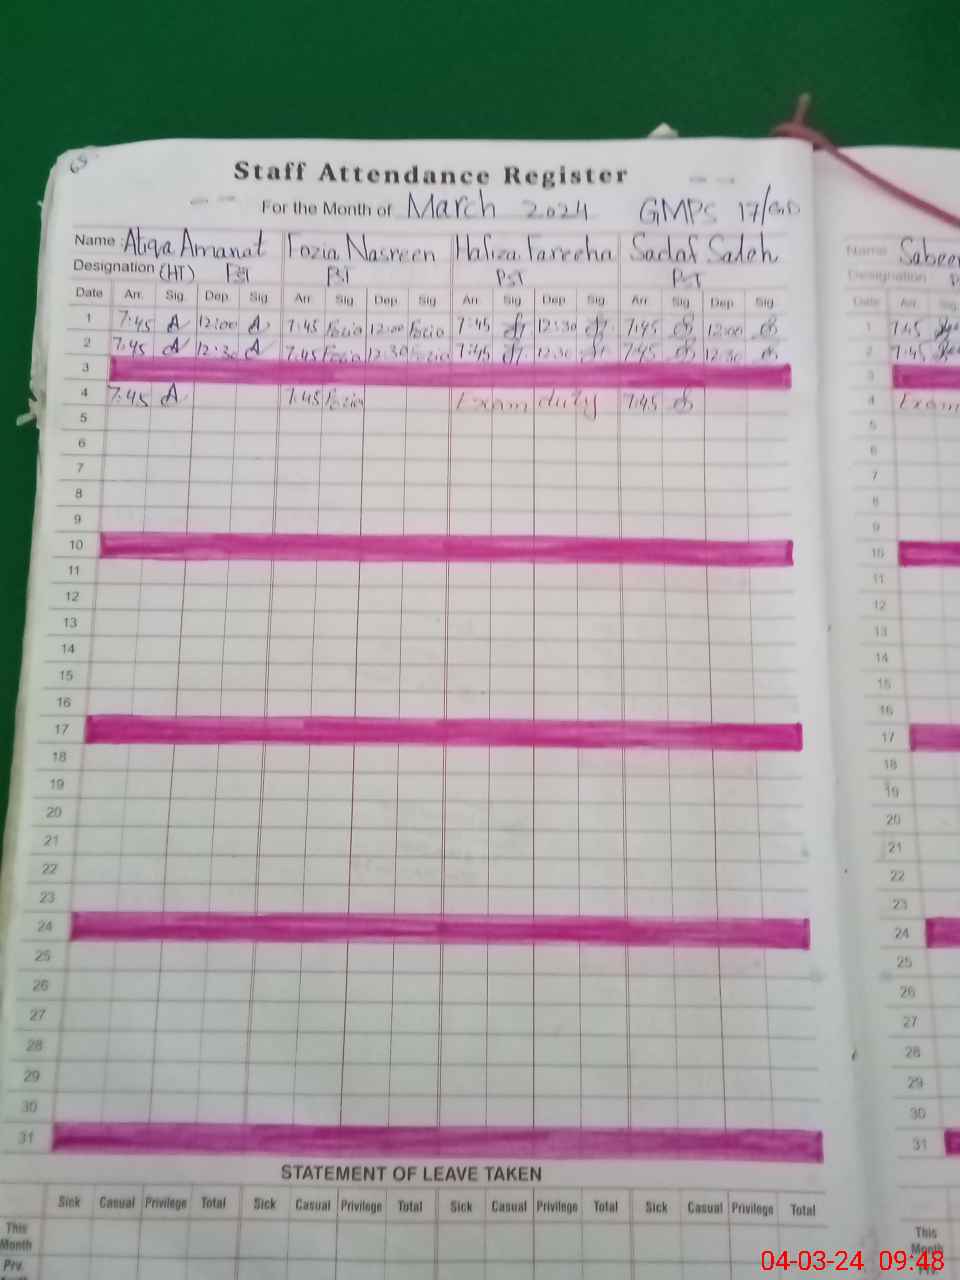 69
Staff Attendance Register
For the Month of March 2024 GMPS 17/GD
Name : Atiqa Amanat Fozia Nasreen Hafiza Fareeha Sadaf Saleh
Designation (HT) PST PST PST PST
Date Arr. Sig. Dep. Sig. Arr. Sig. Dep. Sig. Arr. Sig. Dep. Sig. Arr. Sig. Dep. Sig.
1 7:45 A 12:00 A 7:45 Fozia 12:00 Fozia 7:45 12:30 7:45 12:00
2 7:45 A 12:30 A 7:45 Fozia 12:30 Fozia 7:45 12:30 7:45 12:30
3
4 7:45 A 7:45 Fozia Exam duty 7:45
5
6
7
8
9
10
11
12
13
14
15
16
17
18
19
20
21
22
23
24
25
26
27
28
29
30
31
STATEMENT OF LEAVE TAKEN
Sick Casual Privilege Total Sick Casual Privilege Total Sick Casual Privilege Total Sick Casual Privilege Total
This
Month
Prv.
Name Sabeen
Designation
Date Arr. Sig.
1 7:45
2 7:45
3
4 Exam
5
6
7
8
9
10
11
12
13
14
15
16
17
18
19
20
21
22
23
24
25
26
27
28
29
30
31
This
Month
Prv.
04-03-24 09:48